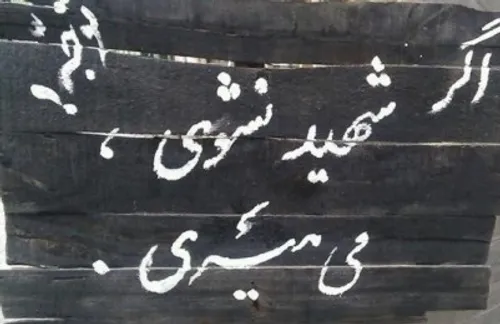 اگر شهید نشوی،
می میری.